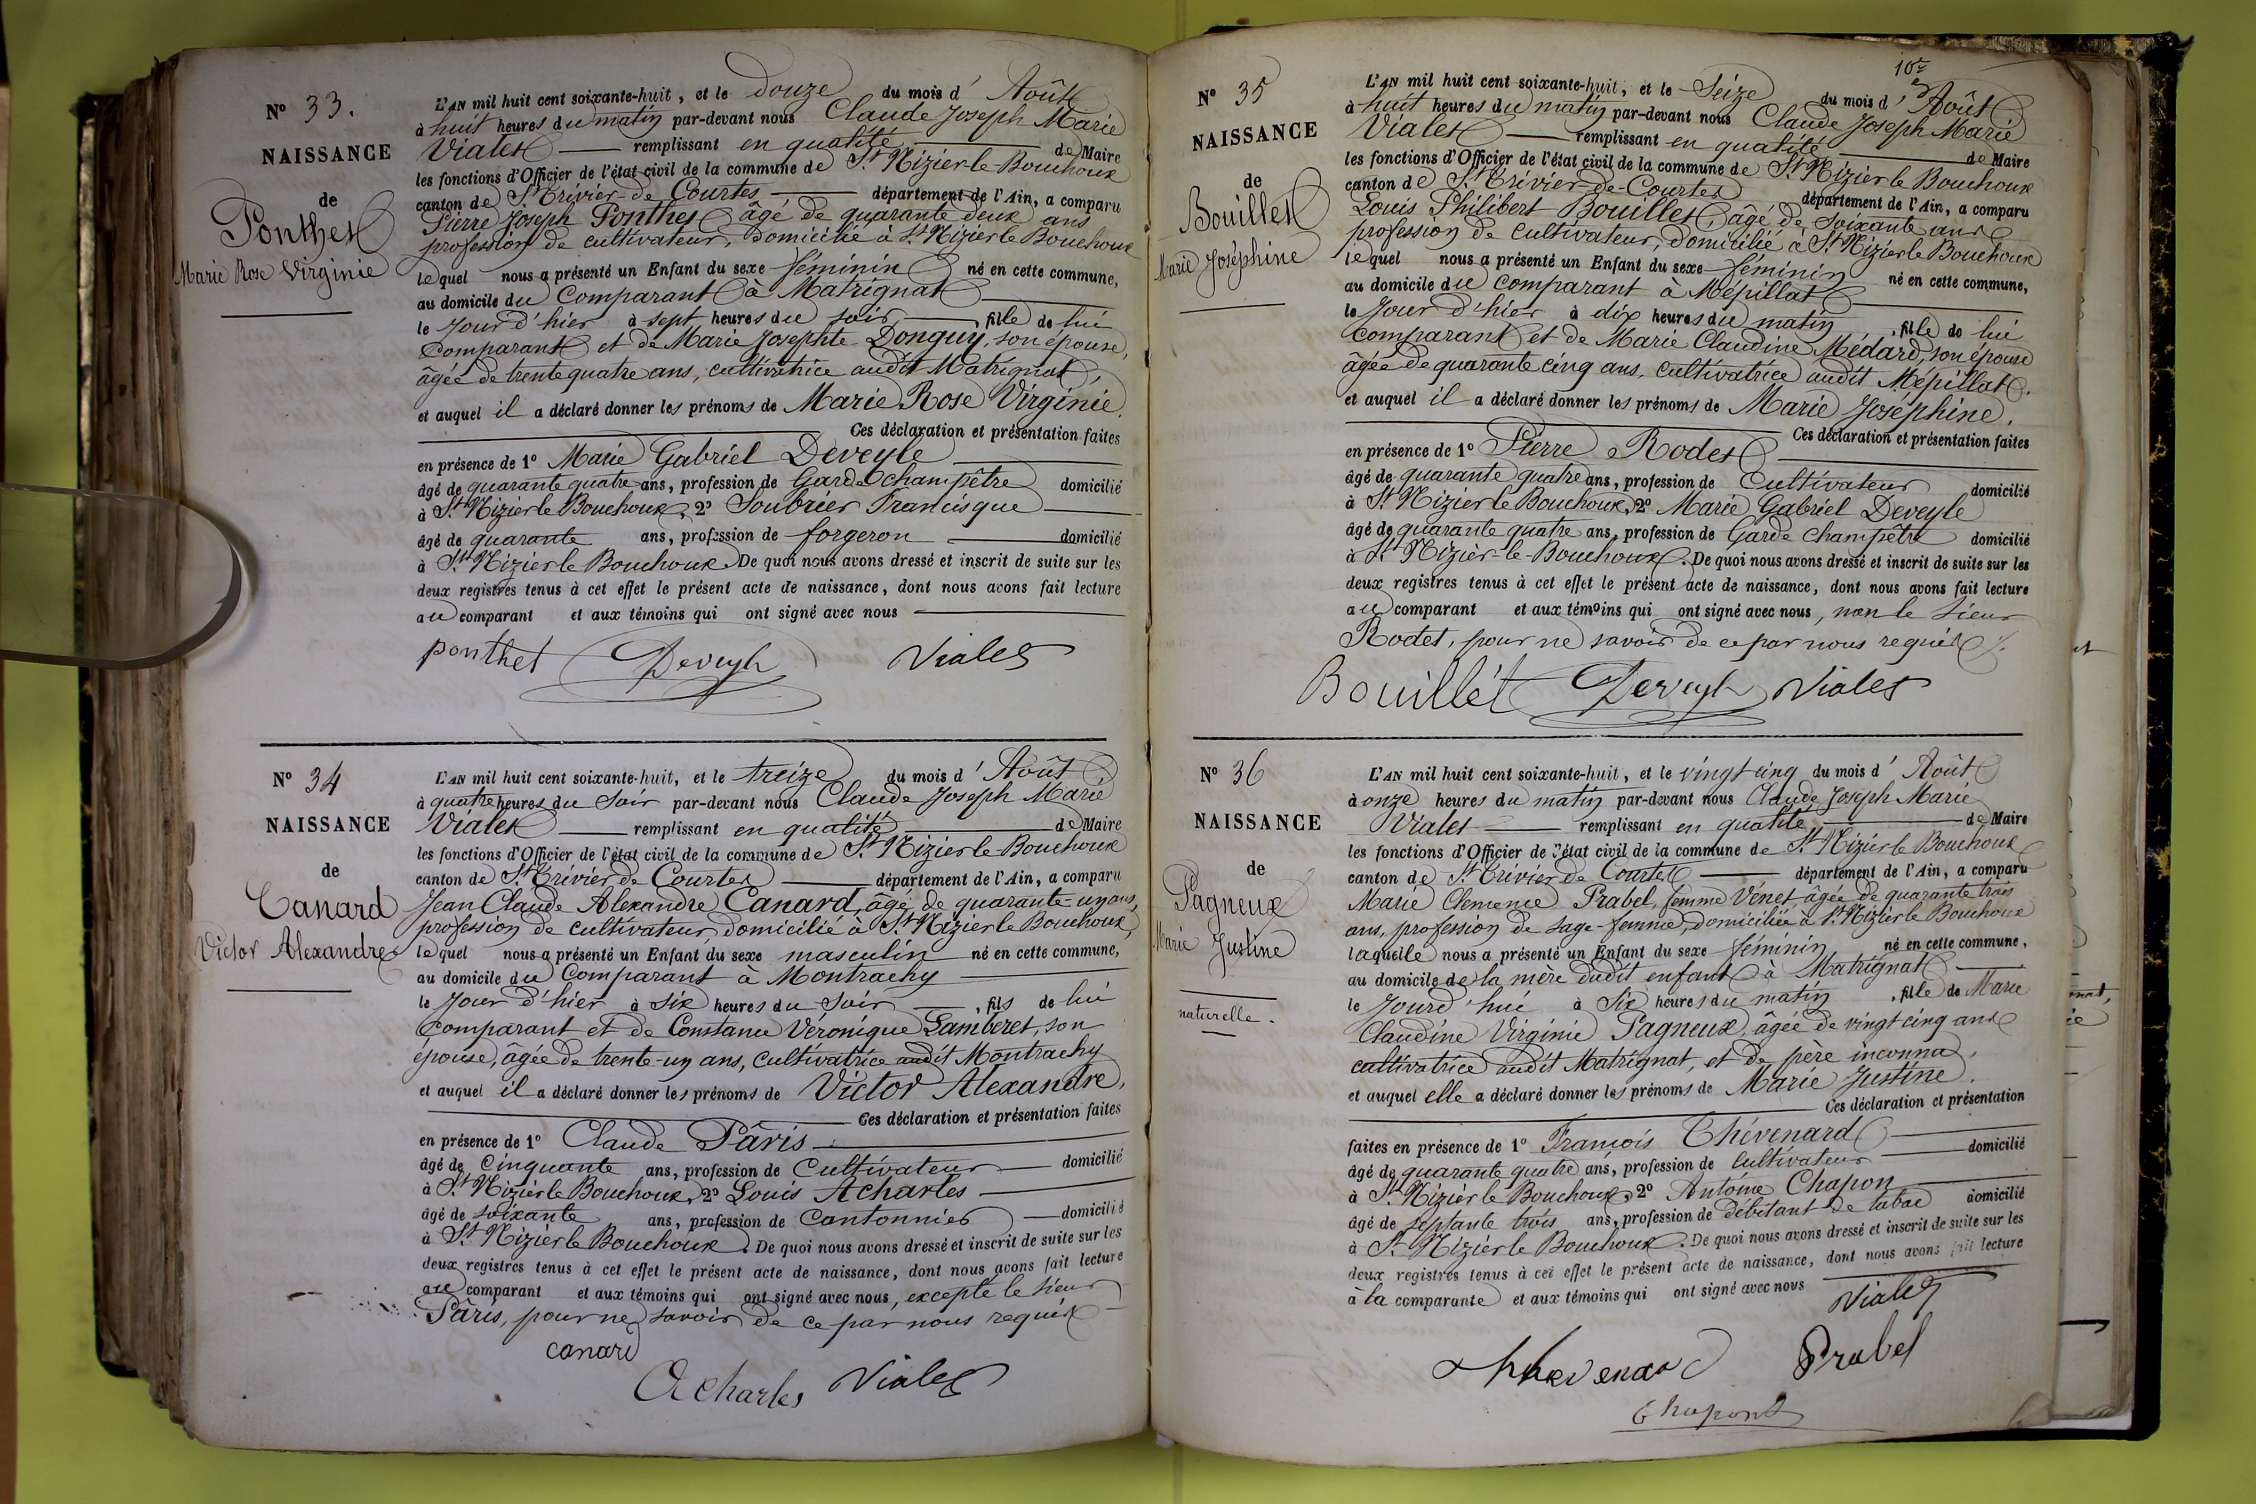 N° 33.
NAISSANCE
de
Ponthet
Marie Rose Virginie
L'AN mil huit cent soixante-huit, et le douze du mois d' Août
à huit heures du matin par-devant nous Claude Joseph Marie
Vialet remplissant en qualité de Maire
les fonctions d'Officier de l'état civil de la commune de St Nizier-le-Bouchoux
canton de St Trivier-de-Courtes département de l'Ain, a comparu
Pierre Joseph Ponthet, âgé de quarante deux ans
profession de cultivateur, domicilié à St Nizier le Bouchoux
lequel nous a présenté un Enfant du sexe féminin né en cette commune,
au domicile du comparant à Matrignat
le jour d'hier à sept heures du soir fille de lui
comparant et de Marie Josephte Donguy, son épouse,
âgée de trente quatre ans, cultivatrice audit Matrignat,
et auquel il a déclaré donner les prénoms de Marie Rose Virginie.
Ces déclaration et présentation faites
en présence de 1° Marie Gabriel Deveyle
âgé de quarante quatre ans, profession de Garde champêtre domicilié
à St Nizier le Bouchoux, 2° Soubrier Francisque
âgé de quarante ans, profession de forgeron domicilié
à St Nizier le Bouchoux. De quoi nous avons dressé et inscrit de suite sur les
deux registres tenus à cet effet le présent acte de naissance, dont nous avons fait lecture
au comparant et aux témoins qui ont signé avec nous
Ponthet Deveyle Vialet
N° 34
NAISSANCE
de
Canard
Victor Alexandre
L'AN mil huit cent soixante-huit, et le treize du mois d' Août
à quatre heures du soir par-devant nous Claude Joseph Marie
Vialet remplissant en qualité de Maire
les fonctions d'Officier de l'état civil de la commune de St Nizier le Bouchoux
canton de St Trivier de Courtes département de l'Ain, a comparu
Jean Claude Alexandre Canard, âgé de quarante-un ans,
profession de cultivateur, domicilié à St Nizier le Bouchoux,
lequel nous a présenté un Enfant du sexe masculin né en cette commune,
au domicile du comparant à Montrachy
le jour d'hier à six heures du soir, fils de lui
comparant et de Constance Véronique Lamberet, son
épouse, âgée de trente-un ans, cultivatrice audit Montrachy
et auquel il a déclaré donner les prénoms de Victor Alexandre,
Ces déclaration et présentation faites
en présence de 1° Claude Pâris
âgé de cinquante ans, profession de cultivateur domicilié
à St Nizier le Bouchoux, 2° Louis Acharles
âgé de soixante ans, profession de cantonnier domicilié
à St Nizier le Bouchoux. De quoi nous avons dressé et inscrit de suite sur les
deux registres tenus à cet effet le présent acte de naissance, dont nous avons fait lecture
au comparant et aux témoins qui ont signé avec nous, excepté le sieur
Pâris, pour ne savoir de ce par nous requis
canard
Acharles Vialet
10e
N° 35
NAISSANCE
de
Bouillet
Marie Joséphine
L'AN mil huit cent soixante-huit, et le Seize du mois d' Août
à huit heures du matin par-devant nous Claude Joseph Marie
Vialet remplissant en qualité de Maire
les fonctions d'Officier de l'état civil de la commune de St Nizier le Bouchoux
canton de St Trivier-de-Courtes département de l'Ain, a comparu
Louis Philibert Bouillet, âgé de soixante ans
profession de cultivateur, domicilié à St Nizier le Bouchoux
lequel nous a présenté un Enfant du sexe féminin né en cette commune,
au domicile du comparant à Mépillat
le jour d'hier à dix heures du matin, fille de lui
comparant et de Marie Claudine Médard, son épouse
âgée de quarante cinq ans, cultivatrice audit Mépillat.
et auquel il a déclaré donner les prénoms de Marie Joséphine.
Ces déclaration et présentation faites
en présence de 1° Pierre Rodet
âgé de quarante quatre ans, profession de Cultivateur domicilié
à St Nizier le Bouchoux, 2° Marie Gabriel Deveyle
âgé de quarante quatre ans, profession de Garde champêtre domicilié
à St Nizier-le-Bouchoux. De quoi nous avons dressé et inscrit de suite sur les
deux registres tenus à cet effet le présent acte de naissance, dont nous avons fait lecture
au comparant et aux témoins qui ont signé avec nous, non le sieur
Rodet, pour ne savoir de ce par nous requis
Bouillet Deveyle Vialet
N° 36
NAISSANCE
de
Pagneux
Marie Justine
naturelle.
L'AN mil huit cent soixante-huit, et le vingt cinq du mois d' Août
à onze heures du matin par-devant nous Claude Joseph Marie
Vialet remplissant en qualité de Maire
les fonctions d'Officier de l'état civil de la commune de St Nizier le Bouchoux
canton de St Trivier de Courtes département de l'Ain, a comparu
Marie Clémence Prabel, femme Vênet, âgée de quarante trois
ans, profession de sage-femme, domiciliée à St Nizier le Bouchoux
laquelle nous a présenté un Enfant du sexe féminin né en cette commune,
au domicile de la mère dudit enfant à Matrignat
le jourd'hui à Six heures du matin, fille de Marie
Claudine Virginie Pagneux, âgée de vingt cinq ans
cultivatrice audit Matrignat, et de père inconnu,
et auquel elle a déclaré donner les prénoms de Marie Justine.
Ces déclaration et présentation
faites en présence de 1° François Thévenard
âgé de quarante quatre ans, profession de cultivateur domicilié
à St Nizier le Bouchoux, 2° Antoine Chapon
âgé de septante trois ans, profession de débitant de tabac domicilié
à St Nizier le Bouchoux. De quoi nous avons dressé et inscrit de suite sur les
deux registres tenus à cet effet le présent acte de naissance, dont nous avons fait lecture
à la comparante et aux témoins qui ont signé avec nous
Vialet
Thevenard Prabel
Chapont